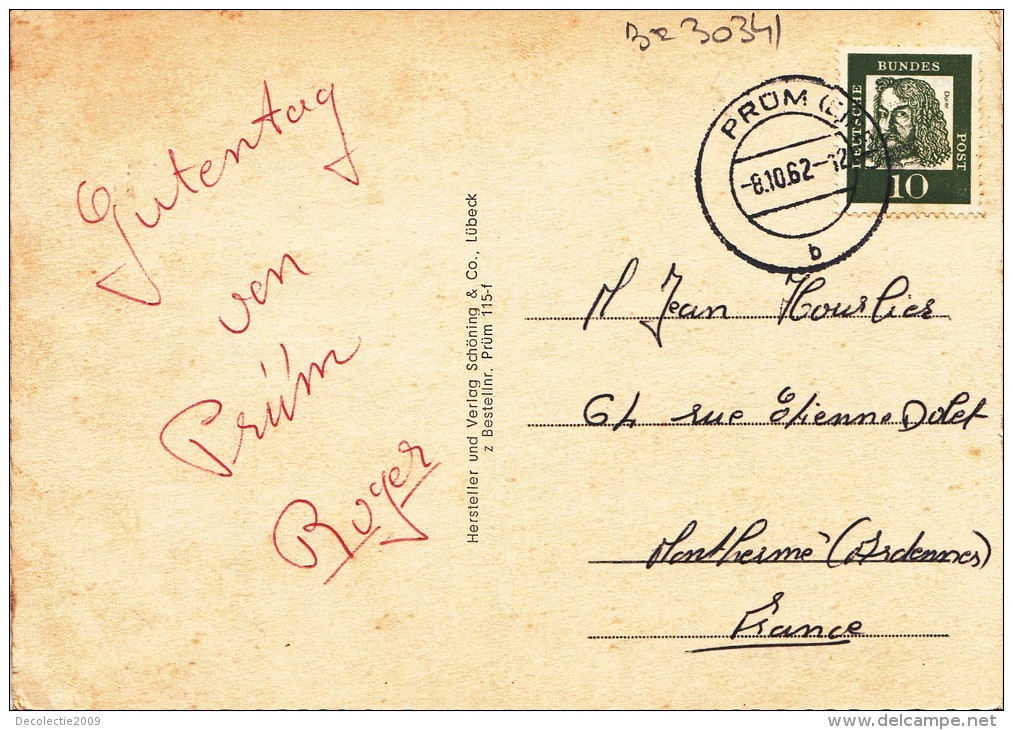 Bz 30341
BUNDES
DEUTSCHE
POST
Dürer
10
PRÜM (E
-8.10.62-12
b
Gutentag
von
Prüm
Roger
Hersteller und Verlag Schöning & Co., Lübeck
z Bestellnr. Prüm 115-f
M Jean Hourlier
64 rue Etienne Dolet
Monthermé (Ardennes)
France
Decolectie2009
www.delcampe.net